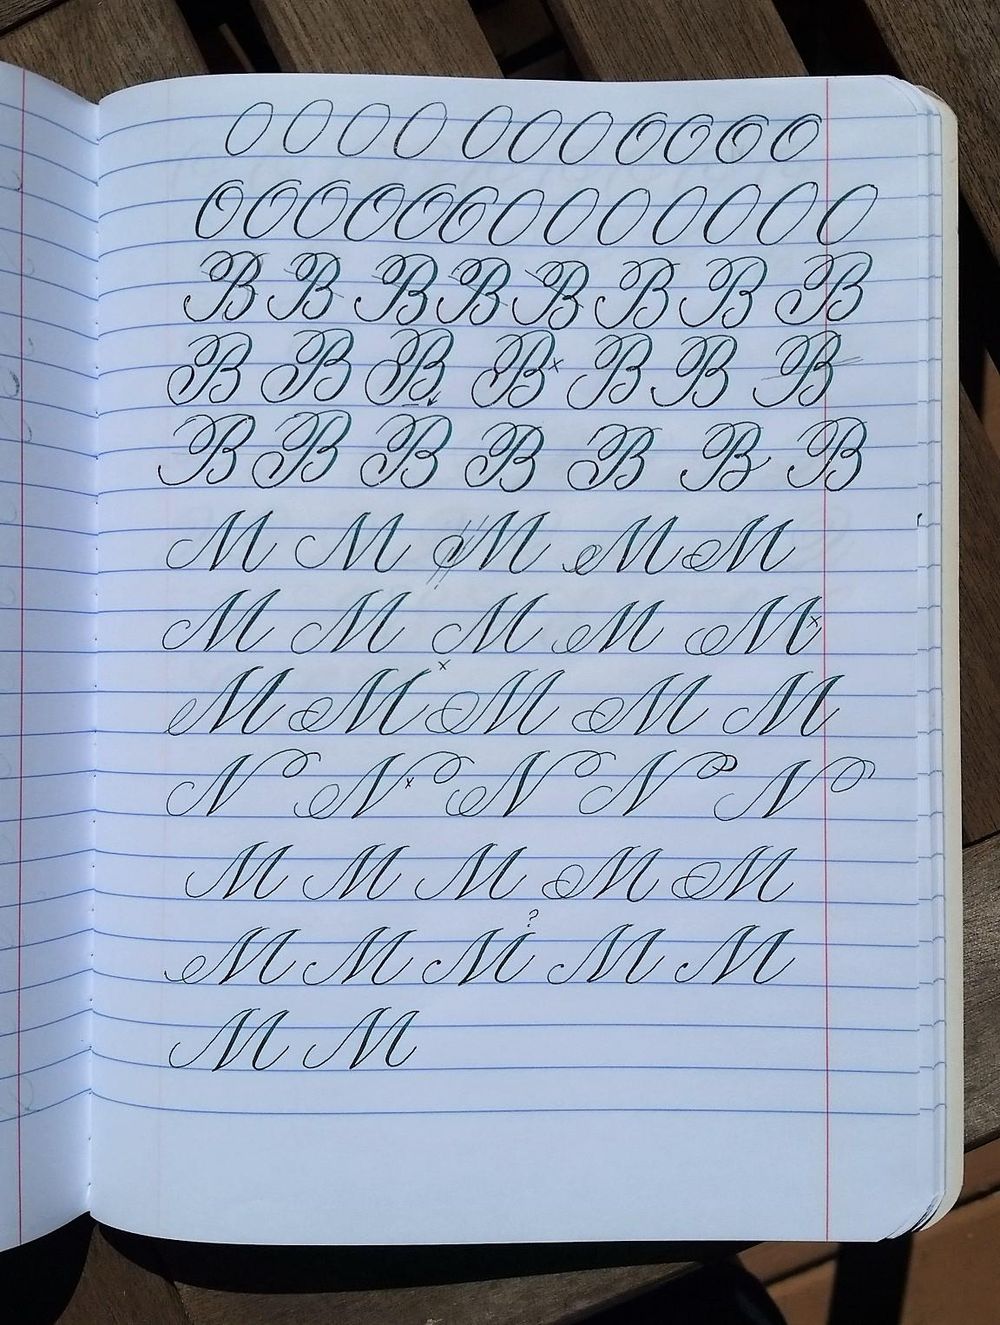 O O O O O O O O O O O
O O O O O O O O O O O O O
B B B B B B B B
B B B B x B B B
B B B B B B B
M M M M M
M M M M M x
M M x M M M
N N x N N N
M M M M M
M M M ? M M
M M